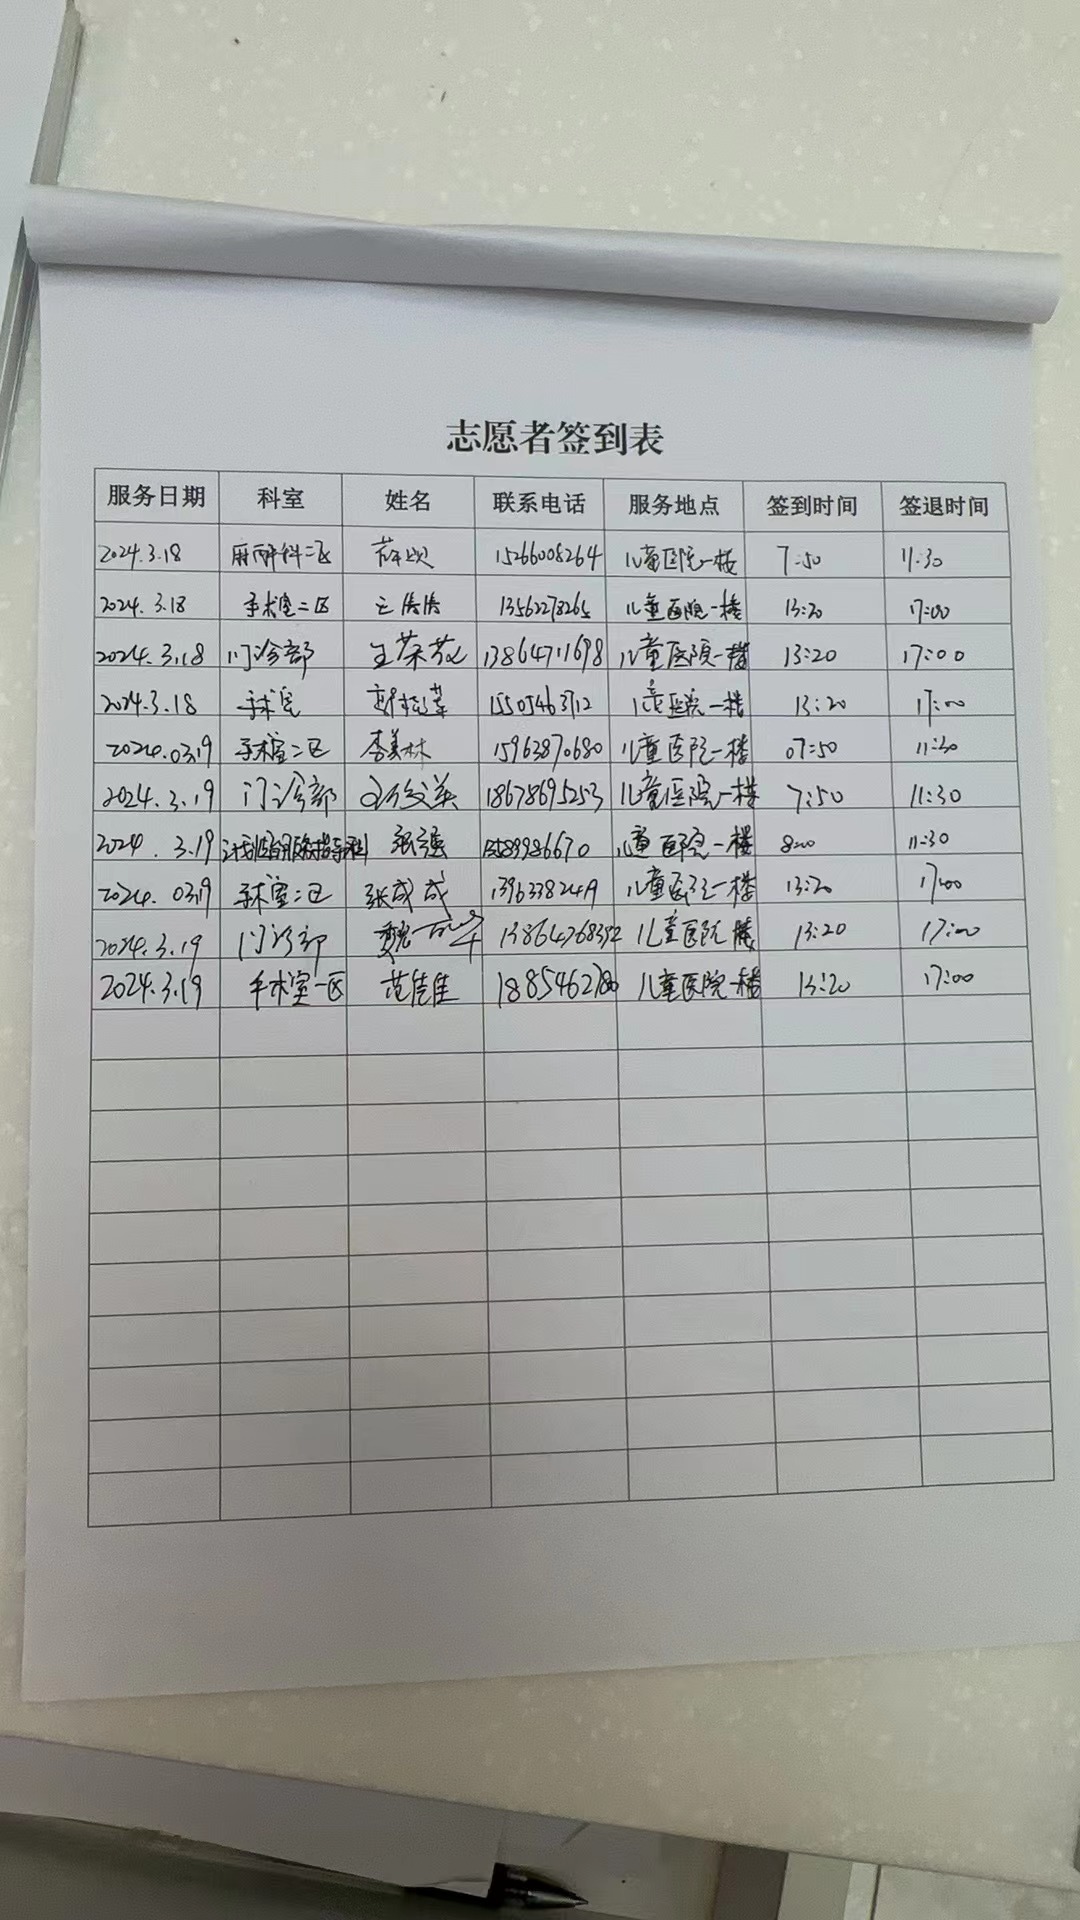 志愿者签到表
服务日期 科室 姓名 联系电话 服务地点 签到时间 签退时间
2024.3.18 麻醉科二区 15266008264 儿童医院一楼 7:50 11:30
2024.3.18 手术室二区 13562278265 儿童医院一楼 13:20 17:00
2024.3.18 门诊部 13864711698 儿童医院一楼 13:20 17:00
2024.3.18 手术室 15505463712 儿童医院一楼 13:20 17:00
2024.03.19 手术室二区 李美林 15963870680 儿童医院一楼 07:50 11:30
2024.3.19 门诊部 18678695253 儿童医院一楼 7:50 11:30
2024.3.19 张强 儿童医院一楼 8:00 11:30
2024.03.19 手术室二区 张成成 13963382419 儿童医院一楼 13:20 17:00
2024.3.19 门诊部 13864768352 儿童医院一楼 13:20 17:00
2024.3.19 手术室一区 范佳佳 儿童医院一楼 13:20 17:00